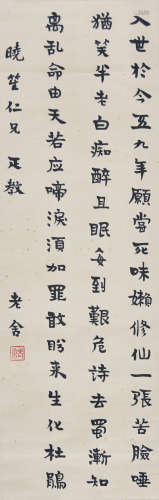 入世於今五九年願嘗死味嬾修仙一張苦臉唾
猶笑半老白痴醉且眠每到艱危詩去蜀漸知
离乱命由天若应啼淚須加罪敢盼来生化杜鵑
曉笙仁兄 正教 老舍